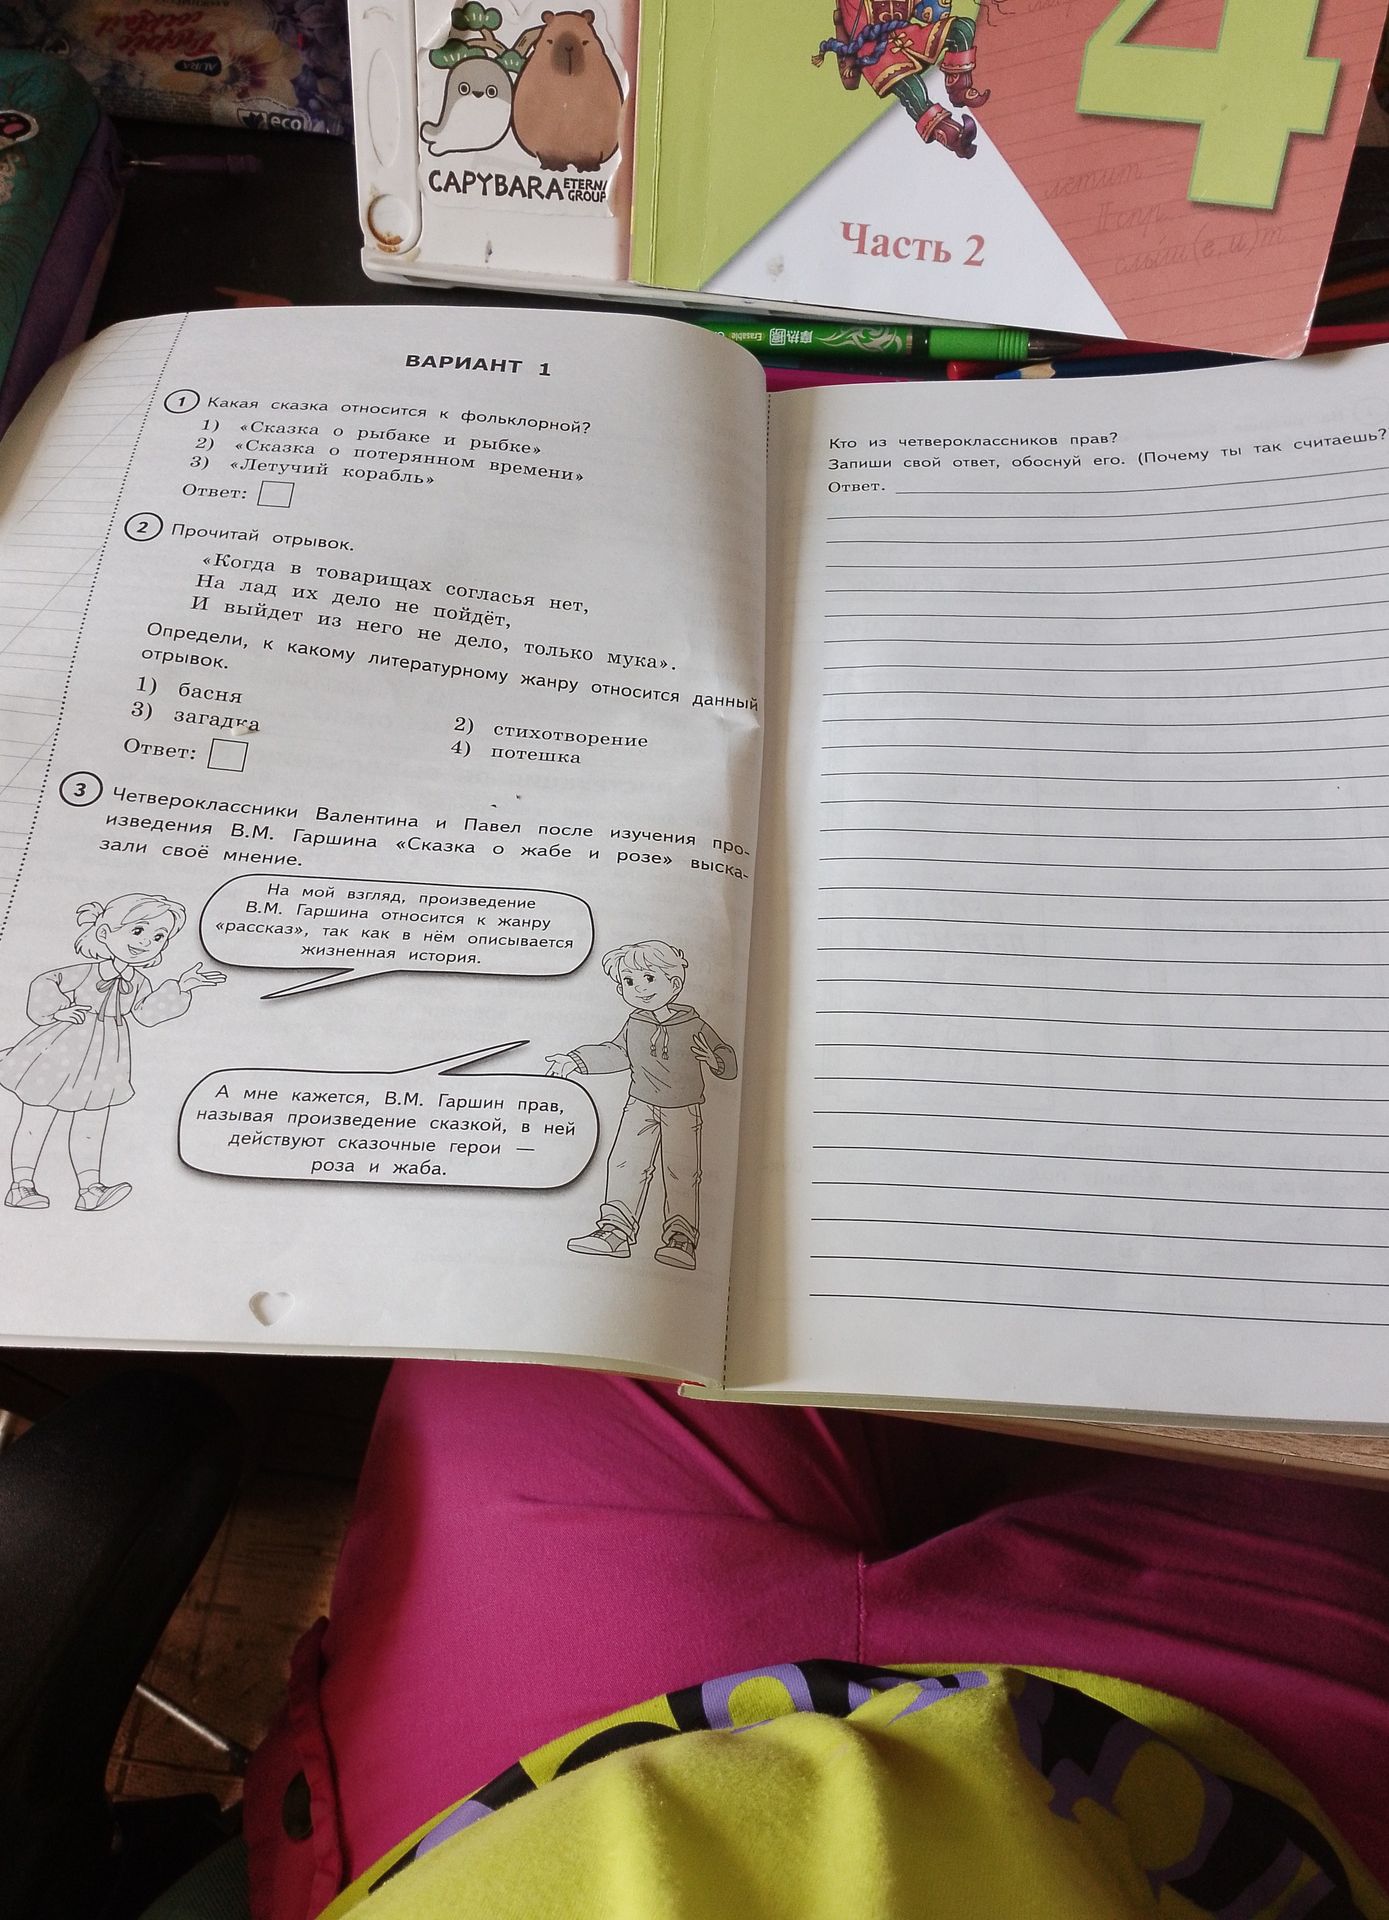 Tropic
cocktail
AURA
eco
CAPYBARA ETERN
GROUP
4
Часть 2
летит
II спр.
слыш(е,и)т
Erasable
ВАРИАНТ 1
1 Какая сказка относится к фольклорной?
1) «Сказка о рыбаке и рыбке»
2) «Сказка о потерянном времени»
3) «Летучий корабль»
Ответ:
2 Прочитай отрывок.
«Когда в товарищах согласья нет,
На лад их дело не пойдёт,
И выйдет из него не дело, только мука».
Определи, к какому литературному жанру относится данный
отрывок.
1) басня
2) стихотворение
3) загадка
4) потешка
Ответ:
3 Четвероклассники Валентина и Павел после изучения про-
изведения В.М. Гаршина «Сказка о жабе и розе» выска-
зали своё мнение.
На мой взгляд, произведение
В.М. Гаршина относится к жанру
«рассказ», так как в нём описывается
жизненная история.
А мне кажется, В.М. Гаршин прав,
называя произведение сказкой, в ней
действуют сказочные герои —
роза и жаба.
Кто из четвероклассников прав?
Запиши свой ответ, обоснуй его. (Почему ты так считаешь?
Ответ.